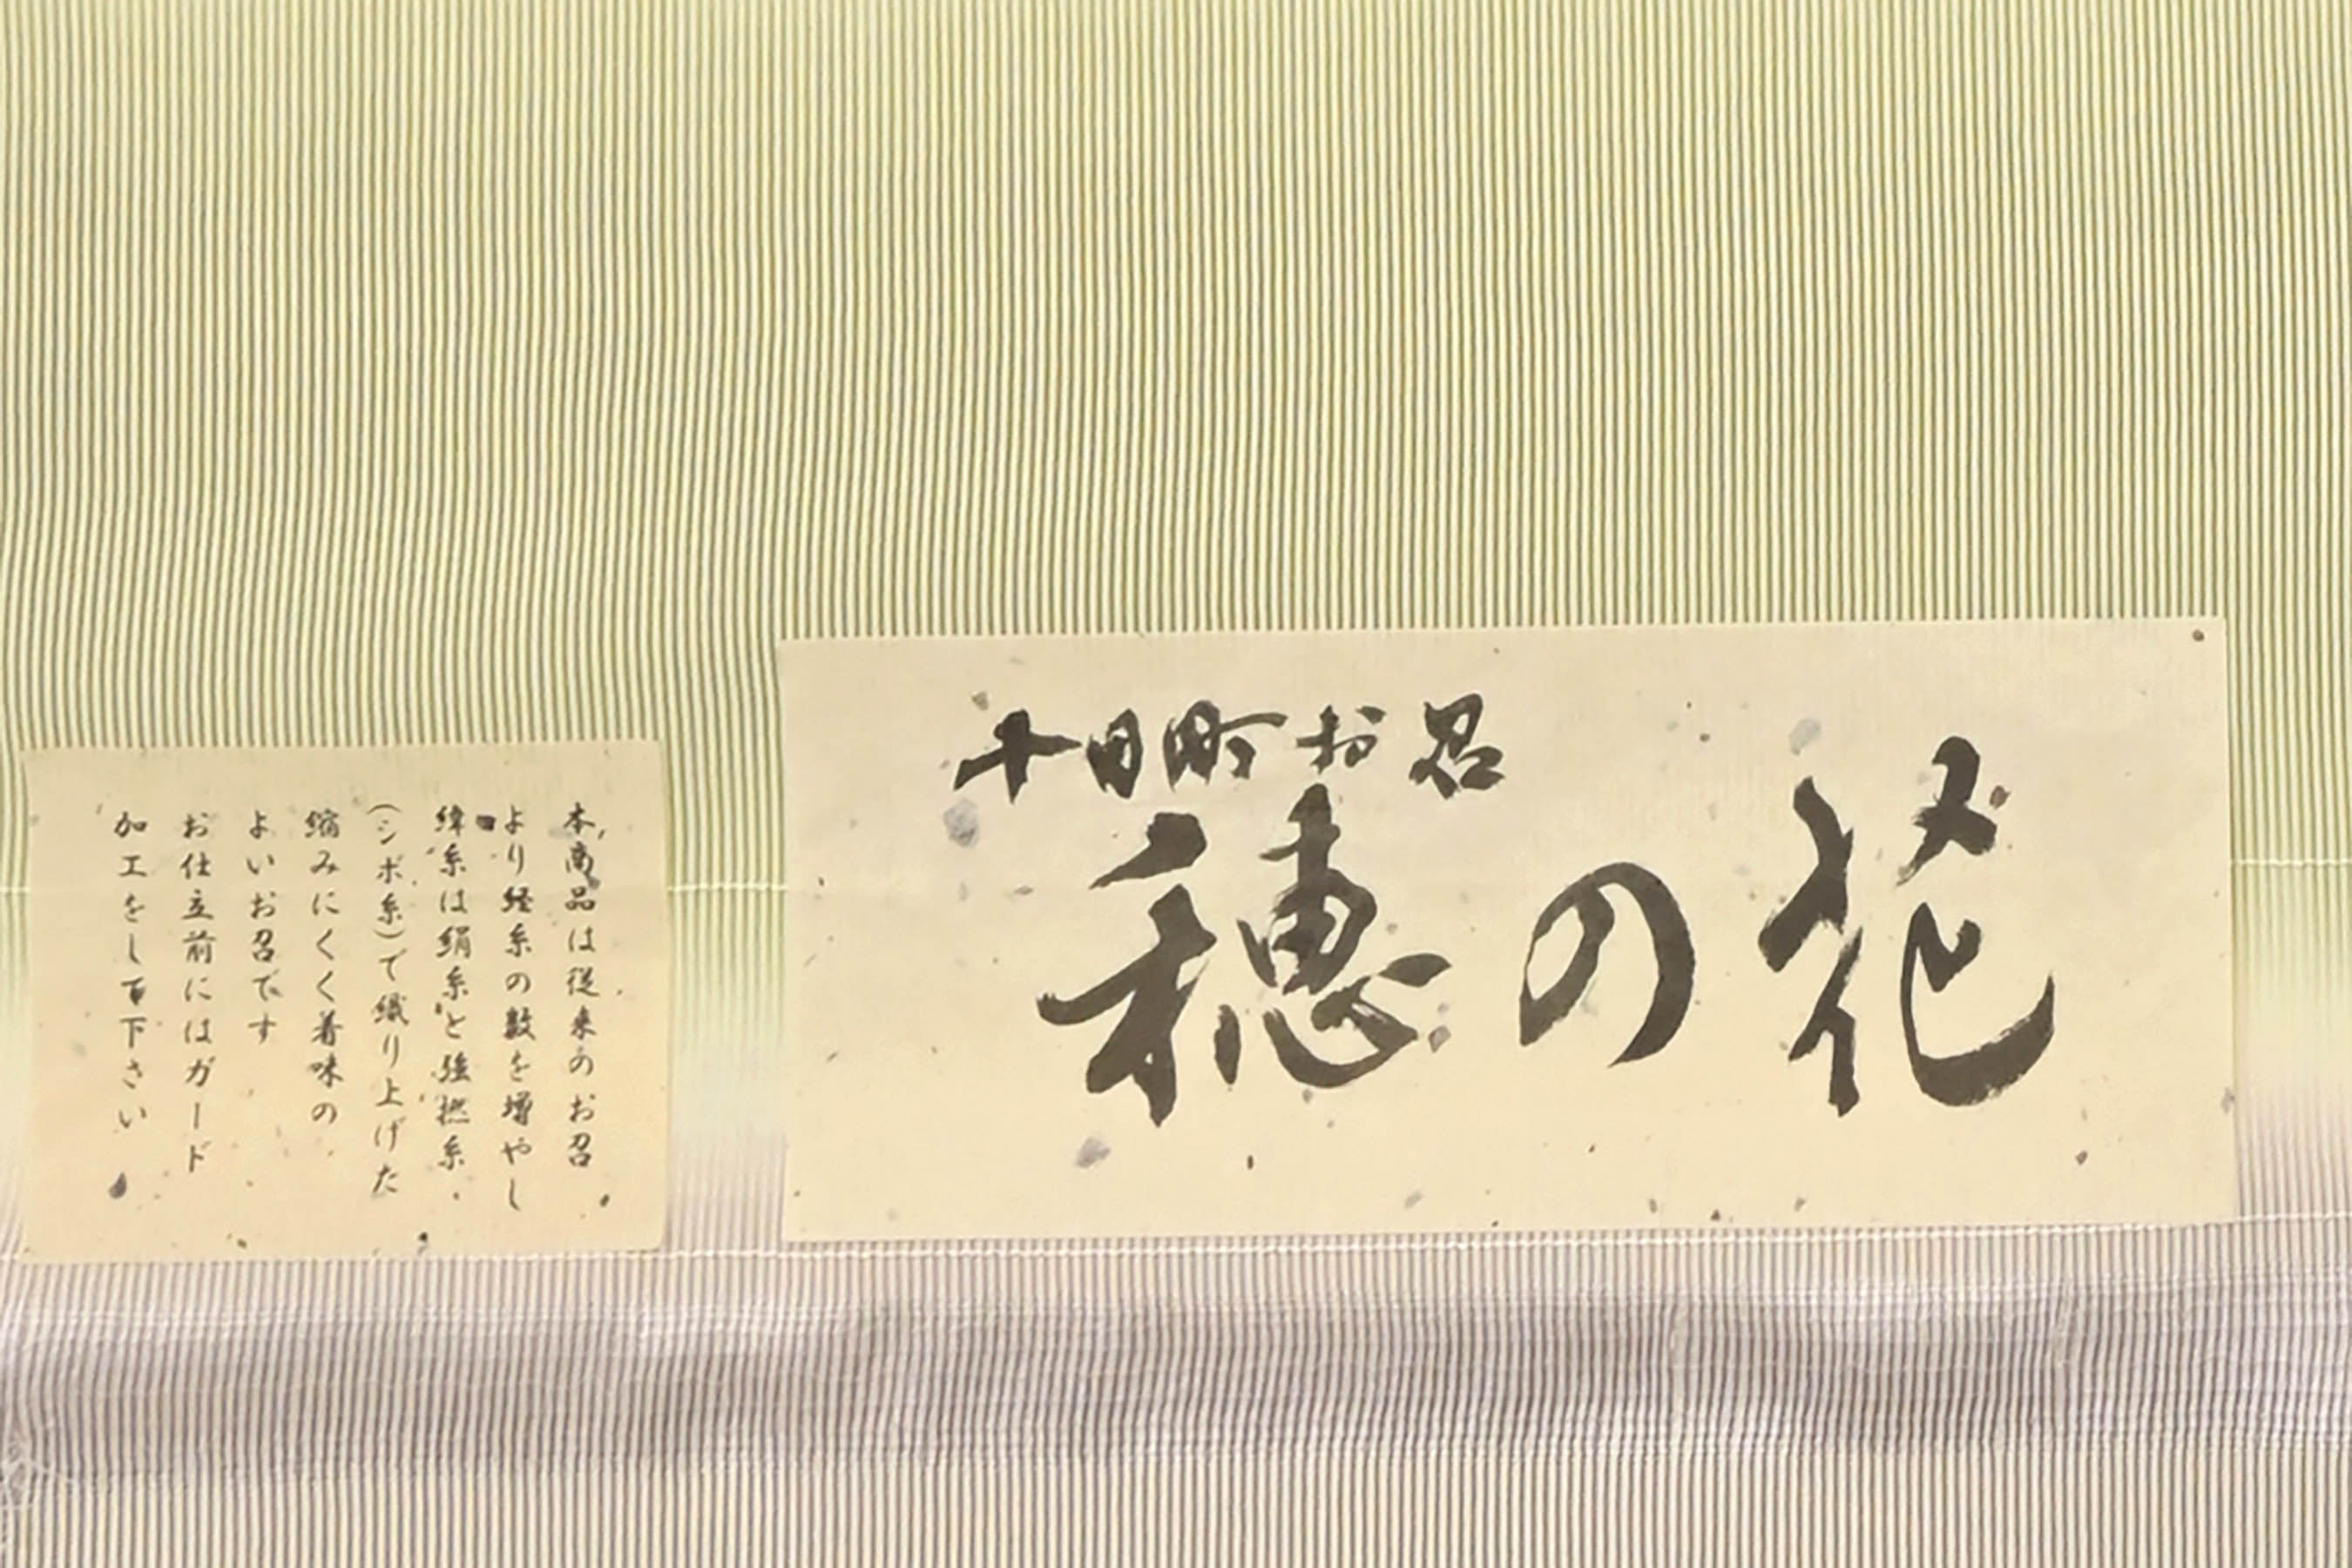 十日町お召
穂の花
本商品は従来のお召
より経糸の数を増やし
緯糸は絹糸と強撚糸
(シボ糸)で織り上げた
縮みにくく着味の
よいお召です
お仕立前にはガード
加工をして下さい